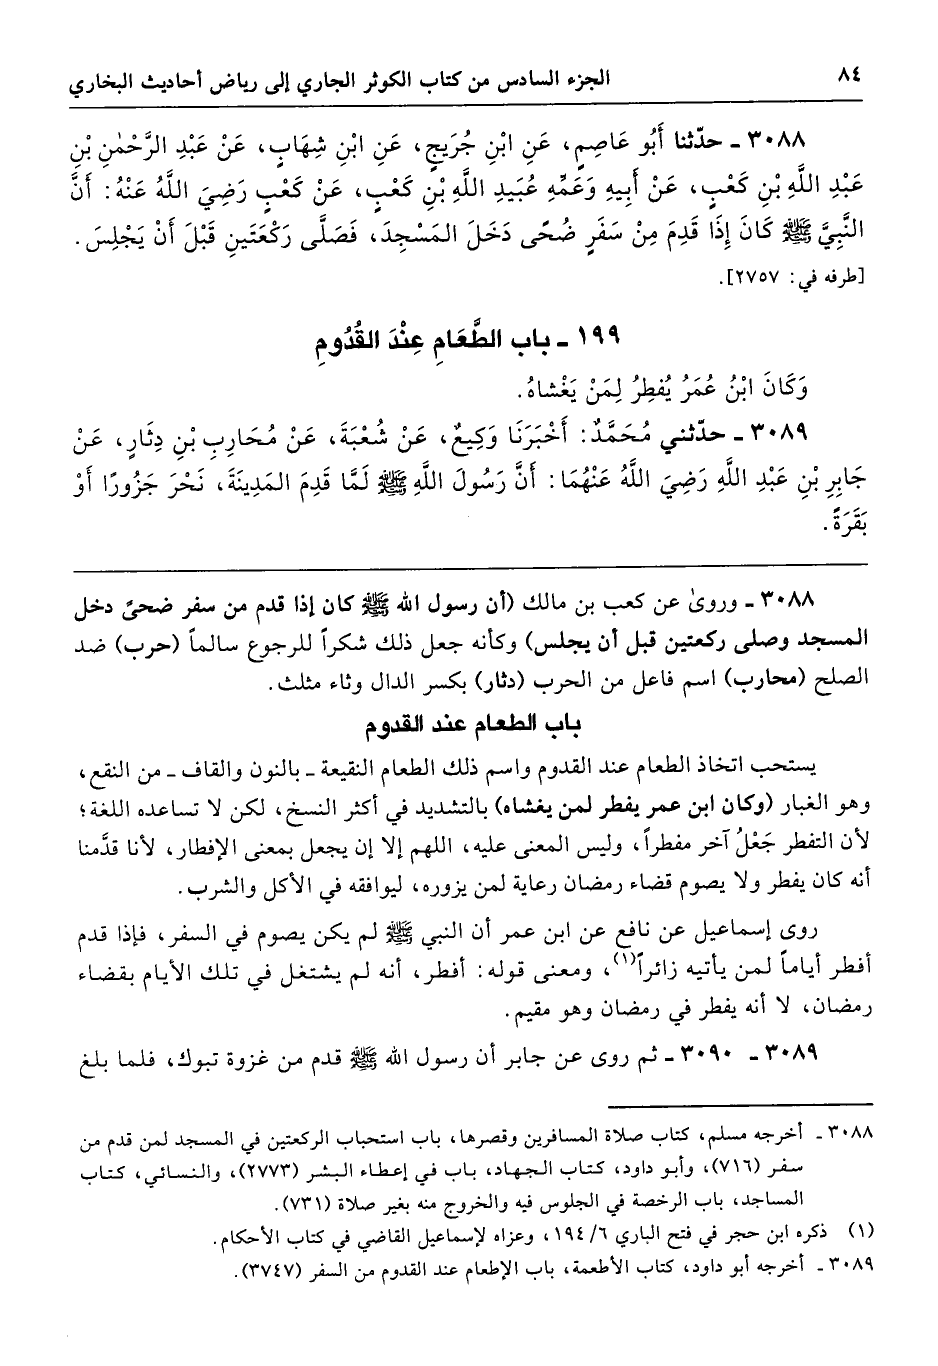 ٨٤ الجزء السادس من كتاب الكوثر الجاري إلى رياض أحاديث البخاري
٣٠٨٨ ـ حدّثنا أَبُو عَاصِمٍ، عَنِ ابْنِ جُرَيجٍ، عَنِ ابْنِ شِهَابٍ، عَنْ عَبْدِ الرَّحْمٰنِ بْنِ
عَبْدِ اللَّهِ بْنِ كَعْبٍ، عَنْ أَبِيهِ وَعَمِّهِ عُبَيدِ اللَّهِ بْنِ كَعْبٍ، عَنْ كَعْبٍ رَضِيَ اللَّهُ عَنْهُ: أَنَّ
النَّبِيَّ ﷺ كَانَ إِذَا قَدِمَ مِنْ سَفَرٍ ضُحًى دَخَلَ المَسْجِدَ، فَصَلَّى رَكْعَتَينِ قَبْلَ أَنْ يَجْلِسَ.
[طرفه في: ٢٧٥٧].
١٩٩ ـ باب الطَّعَامِ عِنْدَ القُدُومِ
وَكَانَ ابْنُ عُمَرُ يُفطِرُ لِمَنْ يَغْشاهُ.
٣٠٨٩ ـ حدّثني مُحَمَّدٌ: أَخْبَرَنَا وَكِيعٌ، عَنْ شُعْبَةَ، عَنْ مُحَارِبِ بْنِ دِثَارٍ، عَنْ
جَابِرِ بْنِ عَبْدِ اللَّهِ رَضِيَ اللَّهُ عَنْهُمَا: أَنَّ رَسُولَ اللَّهِ ﷺ لَمَّا قَدِمَ المَدِينَةَ، نَحْرَ جَزُورًا أَوْ
بَقَرَةً.
٣٠٨٨ ـ وروىٰ عن كعب بن مالك (أن رسول الله ﷺ كان إذا قدم من سفر ضحىً دخل
المسجد وصلى ركعتين قبل أن يجلس) وكأنه جعل ذلك شكراً للرجوع سالماً (حرب) ضد
الصلح (محارب) اسم فاعل من الحرب (دثار) بكسر الدال وثاء مثلث.
باب الطعام عند القدوم
يستحب اتخاذ الطعام عند القدوم واسم ذلك الطعام النقيعة ـ بالنون والقاف ـ من النقع،
وهو الغبار (وكان ابن عمر يفطر لمن يغشاه) بالتشديد في أكثر النسخ، لكن لا تساعده اللغة؛
لأن التفطر جَعْلُ آخر مفطراً، وليس المعنى عليه، اللهم إلا إن يجعل بمعنى الإفطار، لأنا قدَّمنا
أنه كان يفطر ولا يصوم قضاء رمضان رعاية لمن يزوره، ليوافقه في الأكل والشرب.
روى إسماعيل عن نافع عن ابن عمر أن النبي ﷺ لم يكن يصوم في السفر، فإذا قدم
أفطر أياماً لمن يأتيه زائراً(١)، ومعنى قوله: أفطر، أنه لم يشتغل في تلك الأيام بقضاء
رمضان، لا أنه يفطر في رمضان وهو مقيم.
٣٠٨٩ ـ ٣٠٩٠ ـ ثم روى عن جابر أن رسول الله ﷺ قدم من غزوة تبوك، فلما بلغ
٣٠٨٨ ـ أخرجه مسلم، كتاب صلاة المسافرين وقصرها، باب استحباب الركعتين في المسجد لمن قدم من
سفر (٧١٦)، وأبو داود، كتاب الجهاد، باب في إعطاء البشر (٢٧٧٣)، والنسائي، كتاب
المساجد، باب الرخصة في الجلوس فيه والخروج منه بغير صلاة (٧٣١).
(١) ذكره ابن حجر في فتح الباري ٦/ ١٩٤، وعزاه لإسماعيل القاضي في كتاب الأحكام.
٣٠٨٩ ـ أخرجه أبو داود، كتاب الأطعمة، باب الإطعام عند القدوم من السفر (٣٧٤٧).